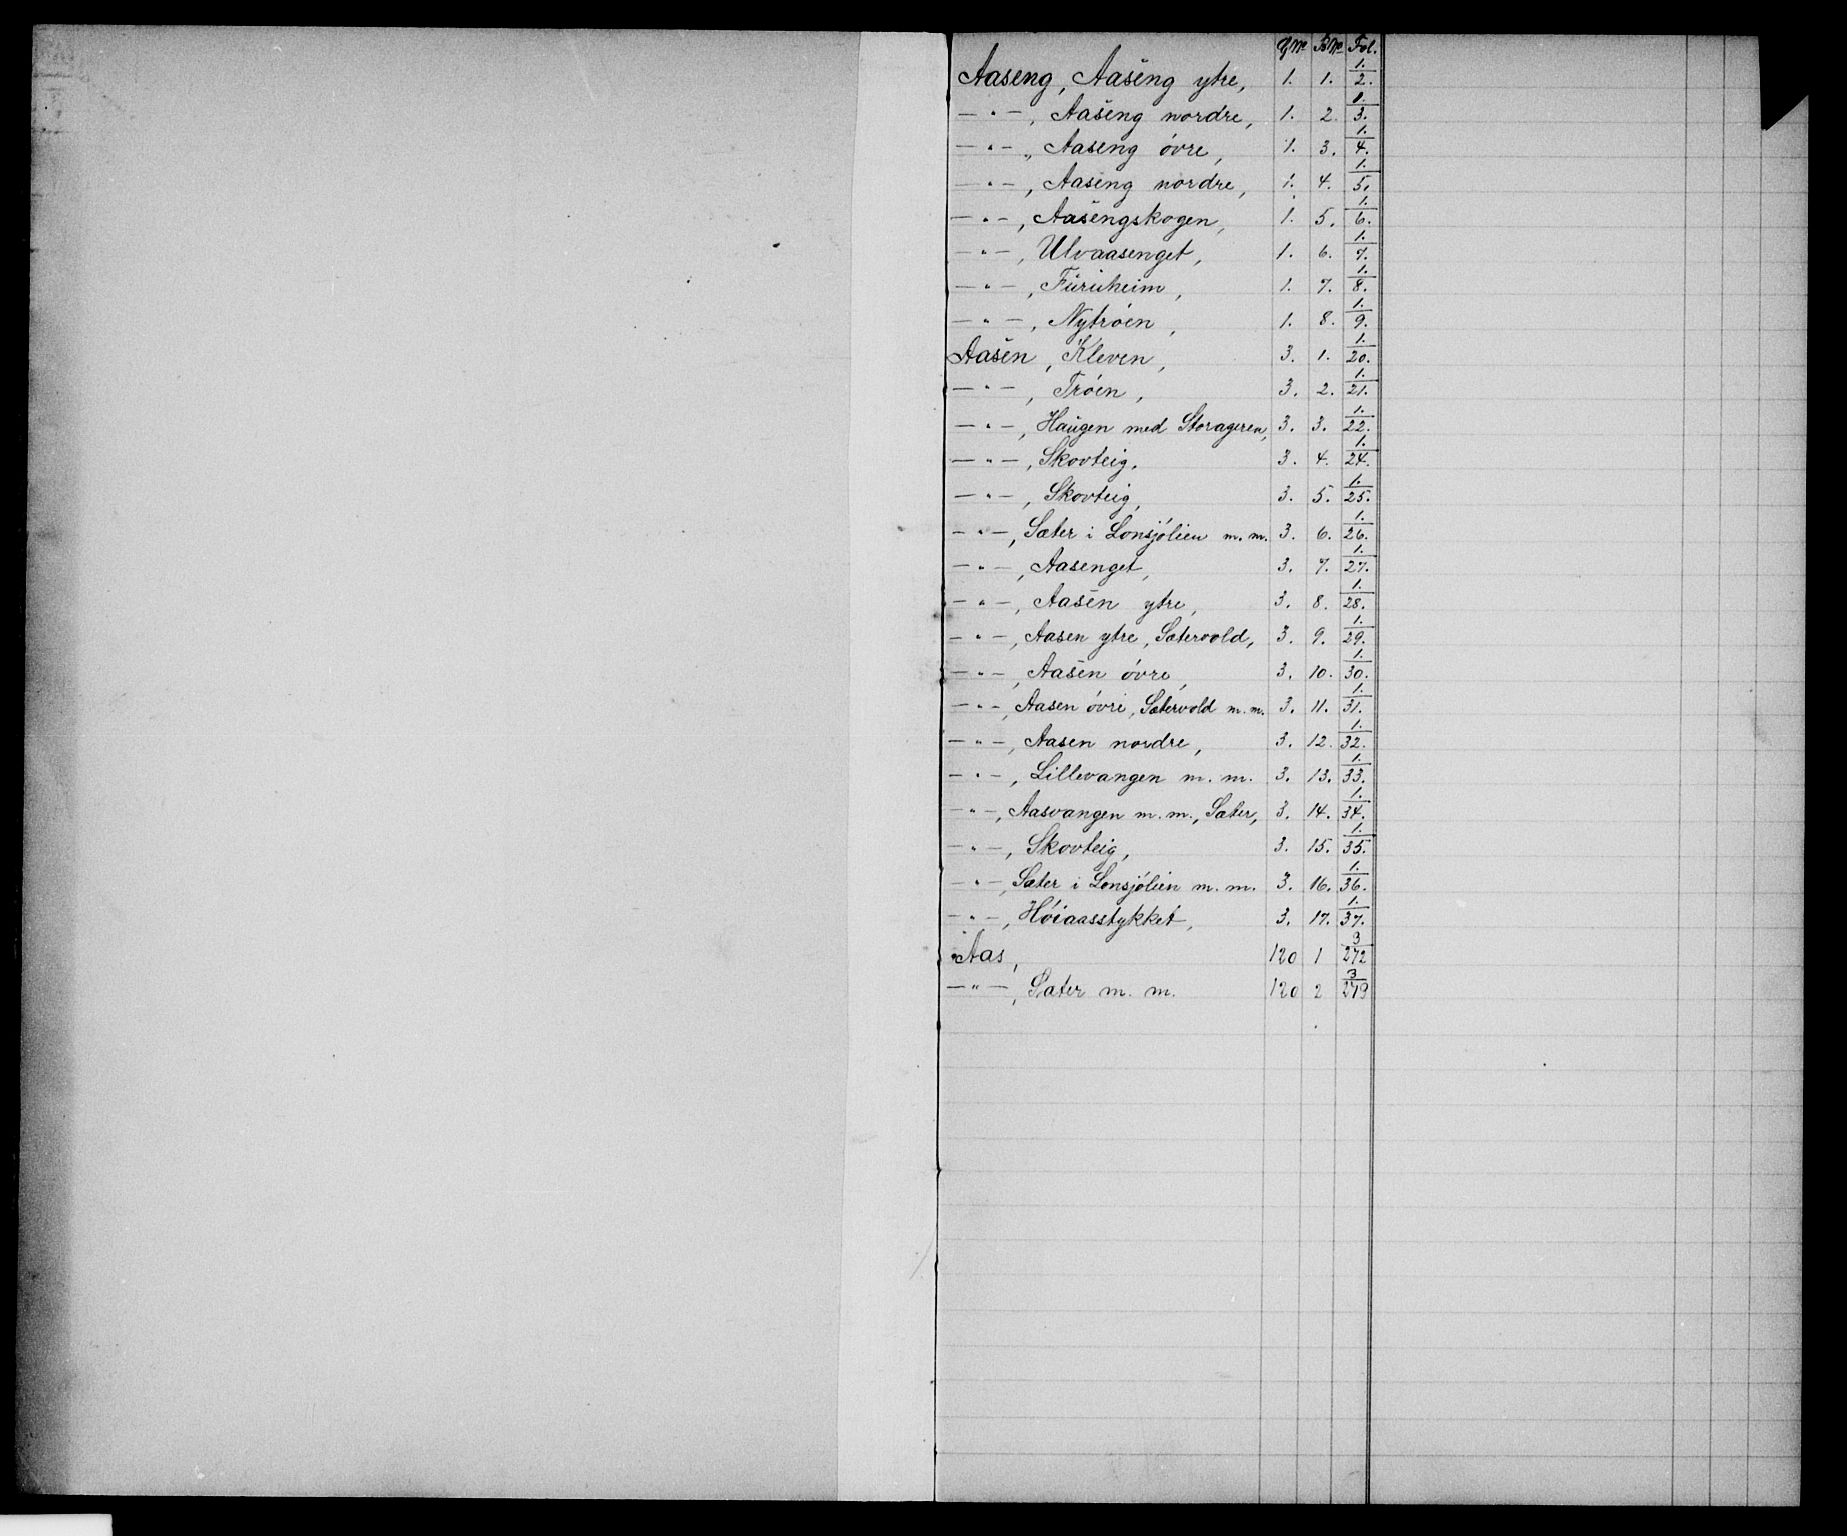 G№ B№ Fol.
Aaseng, Aaseng ytre, 1. 1. 1./2.
—"—, Aaseng nordre, 1. 2. 1./3.
—"—, Aaseng övre, 1. 3. 1./4.
—"—, Aaseng nordre, 1. 4. 1./5.
—"—, Aasengskogen, 1. 5. 1./6.
—"—, Ulvaasenget, 1. 6. 1./7.
—"—, Furuheim, 1. 7. 1./8.
—"—, Nytröen, 1. 8. 1./9.
Aasen, Kleven, 3. 1. 1./20.
—"—, Tröen, 3. 2. 1./21.
—"—, Haugen med Storageren, 3. 3. 1./22.
—"—, Skovteig. 3. 4. 1./24.
—"—, Skovteig, 3. 5. 1./25.
—"—, Sæter i Lonsjölien m. m. 3. 6. 1./26.
—"—, Aasenget, 3. 7. 1./27.
—"—, Aasen ytre, 3. 8. 1./28.
—"—, Aasen ytre, Sætervold, 3. 9. 1./29.
—"—, Aasen övre, 3. 10. 1./30.
—"—, Aasen övre, Sætervold m. m. 3. 11. 1./31.
—"—, Aasen nordre, 3. 12. 1./32.
—"—, Lillevangen m. m. 3. 13. 1./33.
—"—, Aasvangen m. m., Sæter, 3. 14. 1./34.
—"—, Skovteig, 3. 15. 1./35.
—"—, Sæter i Lonsjölien m. m. 3. 16. 1./36.
—"—, Höiaasstykket, 3. 17. 1./37.
Aas, 120 1 3/272
—"—, Sæter m. m. 120 2 3/279